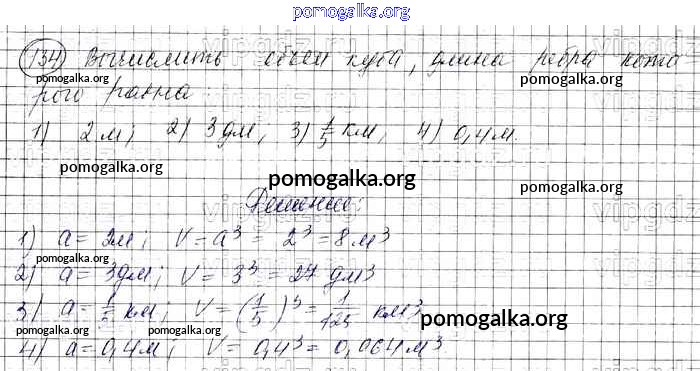 pomogalka.org
134) Вычислить объем куба, длина ребра кото
pomogalka.org pomogalka.org
рого равна:
1) 2 м; 2) 3 дм; 3) 1/5 км; 4) 0,4 м.
pomogalka.org pomogalka.org
pomogalka.org
Решение:
1) a = 2м; V = a³ = 2³ = 8 м³
pomogalka.org
2) a = 3дм; V = 3³ = 27 дм³
3) a = 1/5 км; V = (1/5)³ = 1/125 км³
pomogalka.org pomogalka.org pomogalka.org
4) a = 0,4м; V = 0,4³ = 0,064м³